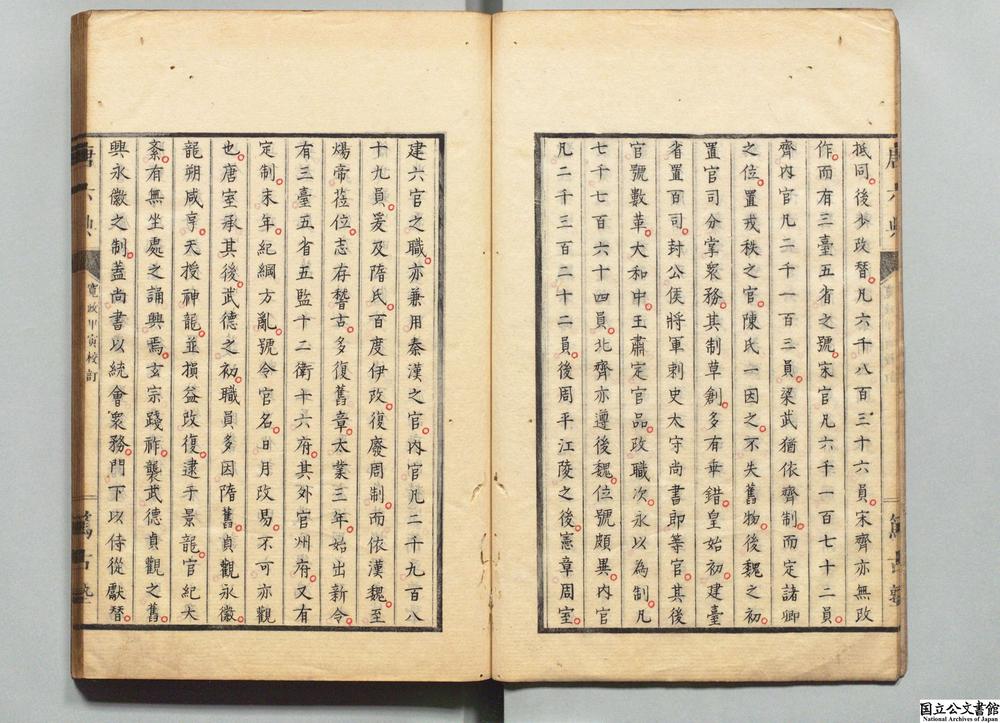 抵同後少政替凡六千八百三十六員宋齊亦無改
作而有三臺五省之號宋官凡六千一百七十二員
齊內官凡二千一百三員梁武猶依齊制而定諸卿
之位置戎秩之官陳氏一因之不失舊物後魏之初
置官司分掌衆務其制草創多有乖錯皇始初建臺
省置百司封公侯將軍刺史太守尚書郎等官其後
官號數革大和中王肅定官品政職次永以為制凡
七千七百六十四員北齊亦遵後魏位號頗異內官
凡二千三百二十二員後周平江陵之後憲章周室
建六官之職亦兼用秦漢之官內官凡二千九百八
十九員爰及隋氏百度伊改復廢周制而依漢魏至
煬帝莅位志存稽古多復舊章太業三年始出新令
有三臺五省五監十二衛十六府其外官州府又有
定制末年紀綱方亂號令官名日月改易不可亦觀
也唐室承其後武德之初職員多因隋舊貞觀永徽
龍朔咸亨天授神龍並損益改復逮于景龍官紀大
紊有無坐處之誦興焉玄宗踐祚襲武德貞觀之舊
興永徽之制蓋尚書以統會衆務門下以侍從獻替
唐六典
寬政甲寅校訂
国立公文書館
National Archives of Japan